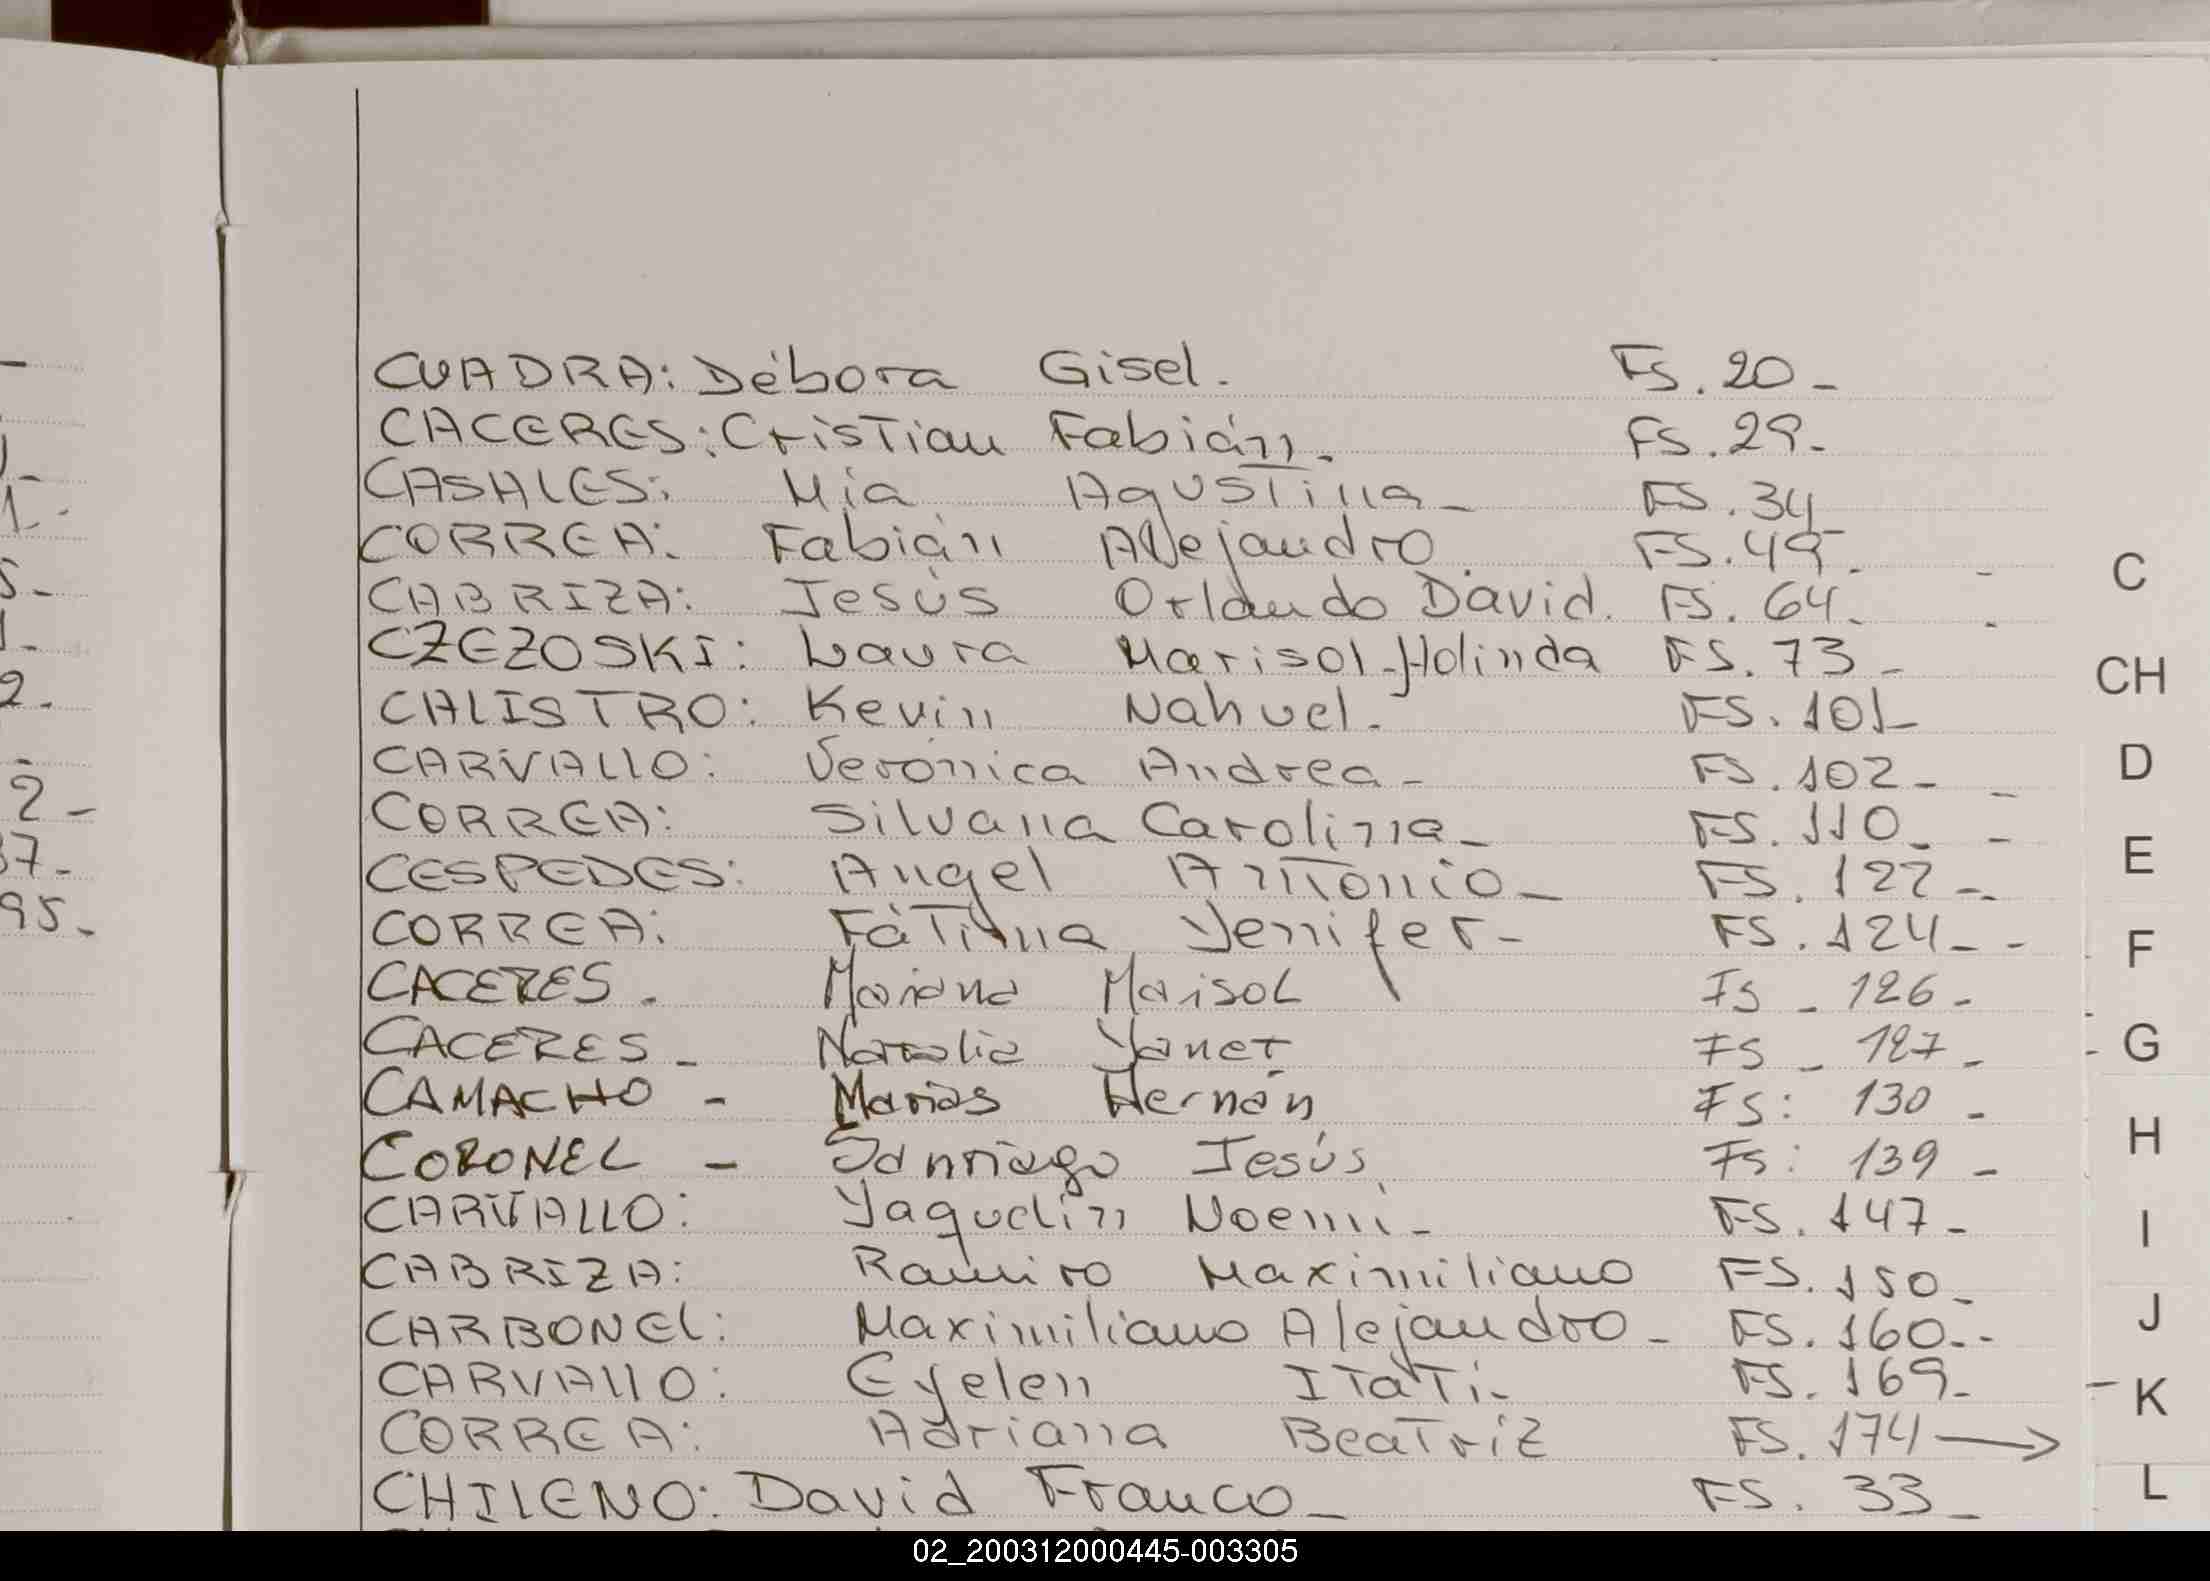 CUADRA: Débora Gisel. Fs. 20-
CACERES: Cristian Fabián. FS. 29-
CASALES: Mia Agustina- FS. 34-
CORREA: Fabián Alejandro. FS. 49-
CABRIZA: Jesús Orlando David. FS. 64-
CZEZOSKI: Laura Marisol Holinda FS. 73-
CALISTRO: Kevin Nahuel. FS. 101-
CARVALLO: Verónica Andrea- FS. 102-
CORREA: Silvana Carolina- FS. 110-
CESPEDES: Angel Antonio- FS. 122-
CORREA: Fátima Yenifer- FS. 124-
CACERES. Mariana Marisol Fs - 126-
CACERES- Natalia Yanet Fs - 127-
CAMACHO - Matias Hernán Fs: 130-
CORONEL - Santiago Jesús Fs: 139-
CARVALLO: Yaquelin Noemi- FS. 147-
CABRIZA: Ramiro Maximiliano FS. 150-
CARBONEL: Maximiliano Alejandro- FS. 160-
CARVALLO: Eyelen Itatí- FS. 169-
CORREA: Adriana Beatriz FS. 174 →
CHILENO: David Franco- FS. 33-
2-
95-
C
CH
D
E
F
G
H
I
J
K
L
02_200312000445-003305